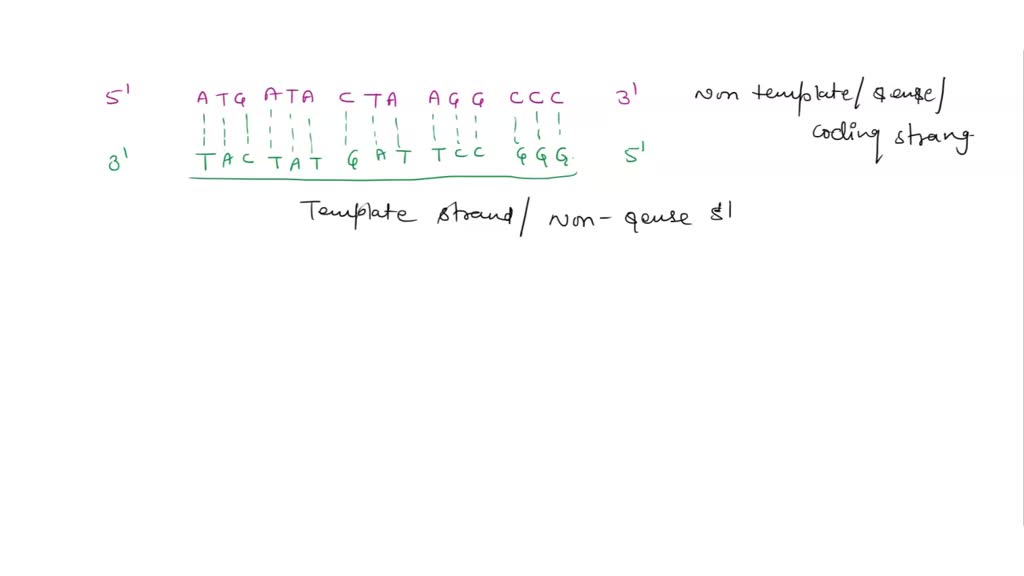 5' ATG ATA CTA AGG CCC 3' Non template/ sense/
coding strang
3' TAC TAT GAT TCC GGG 5'
Template strand/ non-sense st